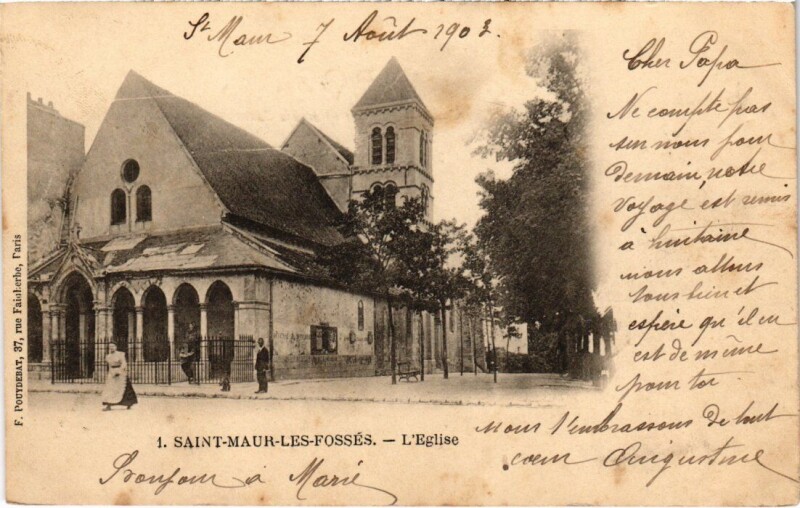 St Maur 7 Août 1903.
Cher Papa
Ne compte pas
sur nous pour
demain, notre
voyage est remis
à huitaine
nous allons
tous bien et
espère qu'il en
est de même
pour toi
Nous t'embrassons de tout
coeur Augustine
F. POUYDEBAT, 37, rue Faidherbe, Paris
1. SAINT-MAUR-LES-FOSSÉS. — L'Eglise
Bonjour à Marie